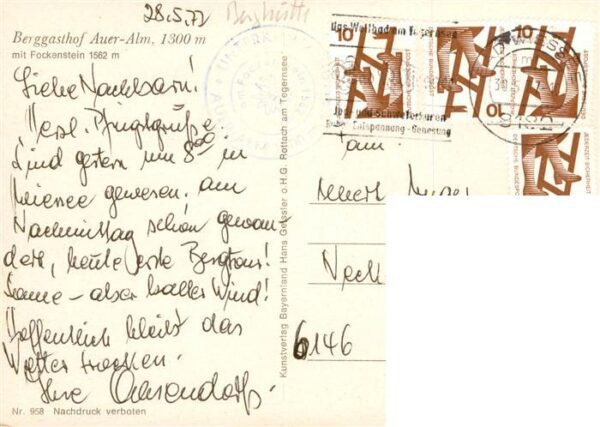 28.5.72 Berghütte
Berggasthof Auer-Alm, 1300 m
mit Fockenstein 1562 m
Liebe Nachbarn!
Herzl. Pfingstgrüße.
Sind gestern um 8⁰⁰ in
Wiessee gewesen, am
Nachmittag schön gewan-
dert, heute erste Bergtour!
Sonne - aber kalter Wind!
Hoffentlich bleibt das
Wetter trocken.
Ihre Ochsendorfs.
Nr. 958 Nachdruck verboten
Kunstverlag Bayernland Hans Geissler o.H.G. Rottach am Tegernsee
Das Weltbad am Tegernsee
Jod- und Schwefelkuren
Entspannung - Genesung
10
10
10
DEUTSCHE BUNDESPOST
An
Neck
6146